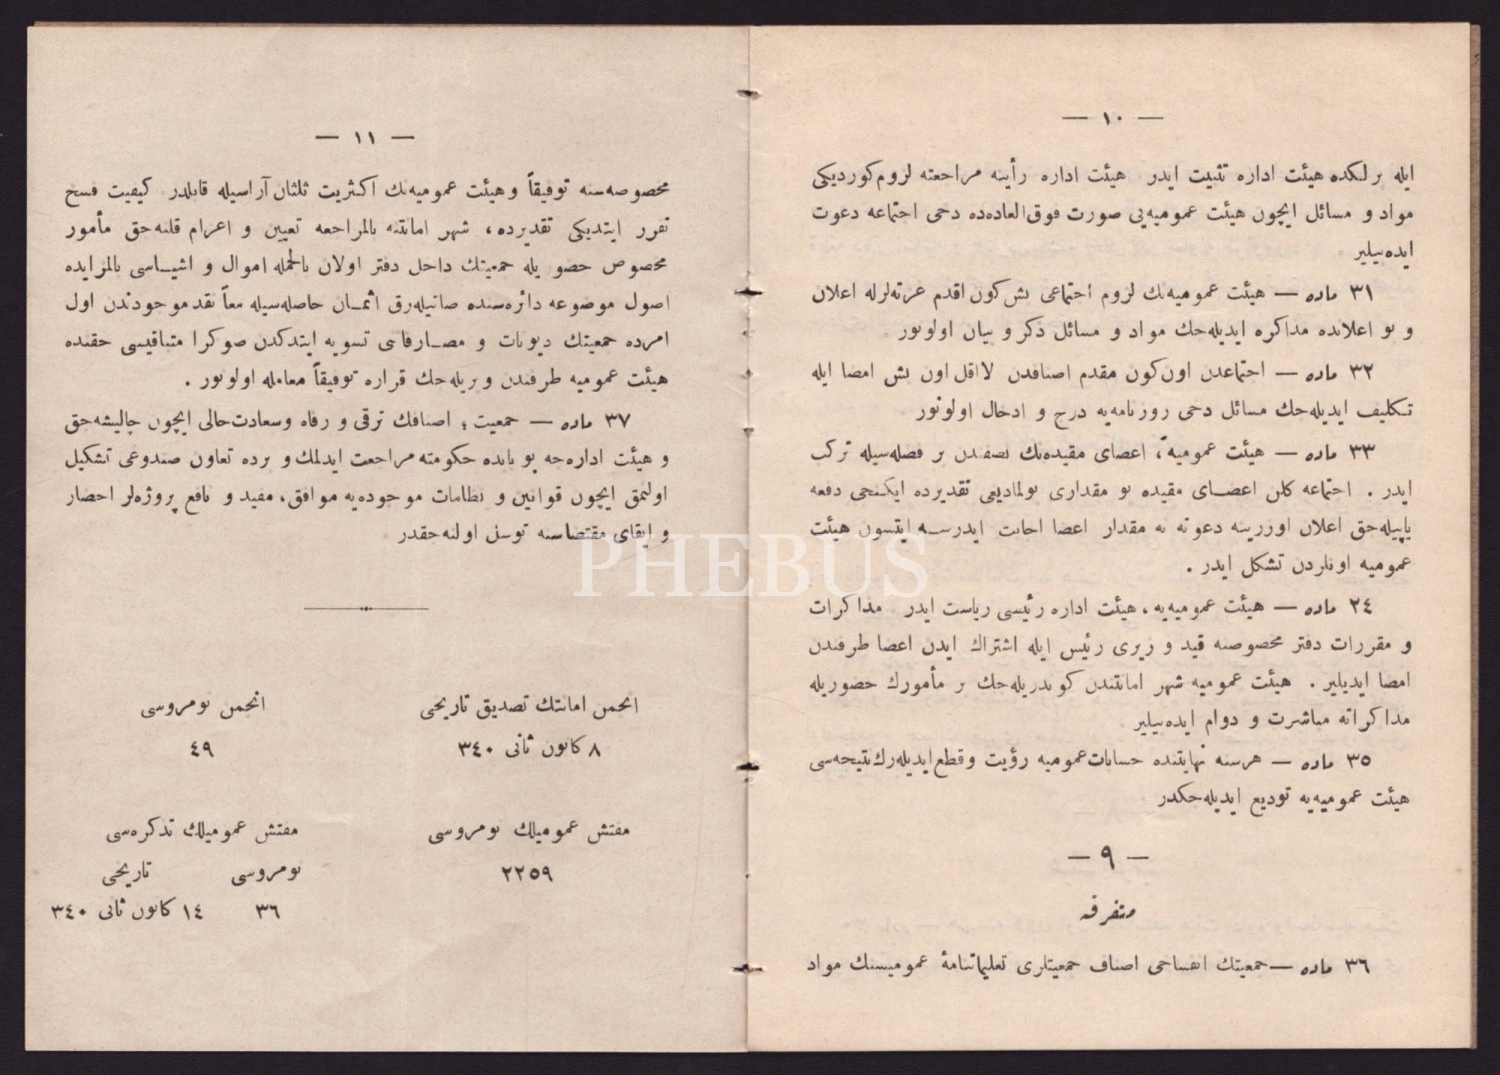 — ١٠ —
ايله برلكده هيئت اداره تثبيت ايدر . هيئت اداره رأينه مراجعته لزوم كورديكى
مواد و مسائل ايچون هيئت عموميه‌يى صورت فوق‌العاده‌ده دخى اجتماعه دعوت
ايده‌بيلير .
٣١ ماده — هيئت عموميه‌نك لزوم اجتماعى بش كون اقدم غزته‌لرله اعلان
و بو اعلانده مذاكره ايديله‌جك مواد و مسائل ذكر و بيان اولونور .
٣٢ ماده — اجتماعدن اون كون مقدم اصنافدن لااقل اون بش امضا ايله
تكليف ايديله‌جك مسائل دخى روزنامه‌يه درج و ادخال اولونور .
٣٣ ماده — هيئت عموميه، اعضاى مقيده‌نك نصفندن بر فضله‌سيله تركب
ايدر . اجتماعه كلن اعضاى مقيده بو مقدارى بولماديغى تقديرده ايكنجى دفعه
ياپيله‌جق اعلان اوزرينه دعوته نه مقدار اعضا اجابت ايدرسه ايتسون هيئت
عموميه اونلردن تشكل ايدر .
٢٤ ماده — هيئت عموميه‌يه، هيئت اداره رئيسى رياست ايدر . مذاكرات
و مقررات دفتر مخصوصنه قيد و زيرى رئيس ايله اشتراك ايدن اعضا طرفندن
امضا ايديلير . هيئت عموميه شهر امانتندن كوندريله‌جك بر مأمورك حضوريله
مذاكراته مباشرت و دوام ايده‌بيلير .
٣٥ ماده — هر سنه نهايتنده حسابات عموميه رؤيت و قطع ايديله‌رك نتيجه‌سى
هيئت عموميه‌يه توديع ايديله‌جكدر .
— ٩ —
متفرقه
٣٦ ماده — جمعيتك انفساخى اصناف جمعيتلرى تعليماتنامهٔ عموميسنك مواد
— ١١ —
مخصوصه‌سنه توفيقاً و هيئت عموميه‌نك اكثريت ثلثان آراسيله قابلدر . كيفيت فسخ
تقرر ايتديكى تقديرده، شهر امانتنه بالمراجعه تعيين و اعزام قلنه‌جق مأمور
مخصوص حضوريله جمعيتك داخل دفتر اولان بالجمله اموال و اشياسى بالمزايده
اصول موضوعه دائره‌سنده صاتيله‌رق اثمان حاصله‌سيله معاً نقد موجودندن اول
امرده جمعيتك ديونات و مصارفاتى تسويه ايتدكدن صوكرا متباقيسى حقنده
هيئت عموميه طرفندن ويريله‌جك قراره توفيقاً معامله اولونور .
٣٧ ماده — جمعيت؛ اصنافك ترقى و رفاه و سعادت حالى ايچون چاليشه‌جق
و هيئت اداره‌جه بو بابده حكومته مراجعت ايدلمك و برده تعاون صندوغى تشكيل
اولنمق ايچون قوانين و نظامات موجوده‌يه موافق، مفيد و نافع پروژه‌لر احضار
و ايفاى مقتضاسنه توسل اولنه‌جقدر .
انجمن امانتك تصديق تاريخى
٨ كانون ثانى ٣٤٠
انجمن نومروسى
٤٩
مفتش عموميلك نومروسى
٢٢٥٩
مفتش عموميلك تذكره‌سى
نومروسى تاريخى
٣٦ ١٤ كانون ثانى ٣٤٠
PHEBUS